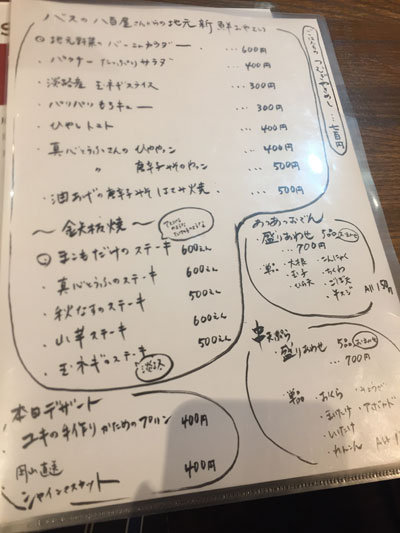 バスの八百屋さんからの地元新鮮
地元野菜の バーニャカウダー … 600円
パクチー たっぷりサラダ … 400円
淡路産 玉ネギスライス … 300円
パリパリ もろキュー … 300円
ひやしトマト … 400円
真心とうふさんの ひややっこ … 400円
〃 唐辛子みそのやっこ … 500円
油あげの唐辛子みそ はさみ焼 … 500円
〜鉄板焼〜
まこもだけのステーキ 600えん
真心とうふのステーキ 600えん
秋なすのステーキ 500えん
山芋ステーキ 600えん
玉ネギのステーキ 500えん
淡路
本日デザート
ユキの手作り かためのプリン 400円
岡山直送
シャインマスカット 400円
あつあつおでん
盛りあわせ 5品
… 700円
単品 ・大根 ・こんにゃく
・玉子 ・ちくわ
・ごぼう天
All 150円
串天ぷら
・盛りあわせ 5品
… 700円
単品 ・おくら
・まいたけ ・アボカド
・しいたけ
・れんこん